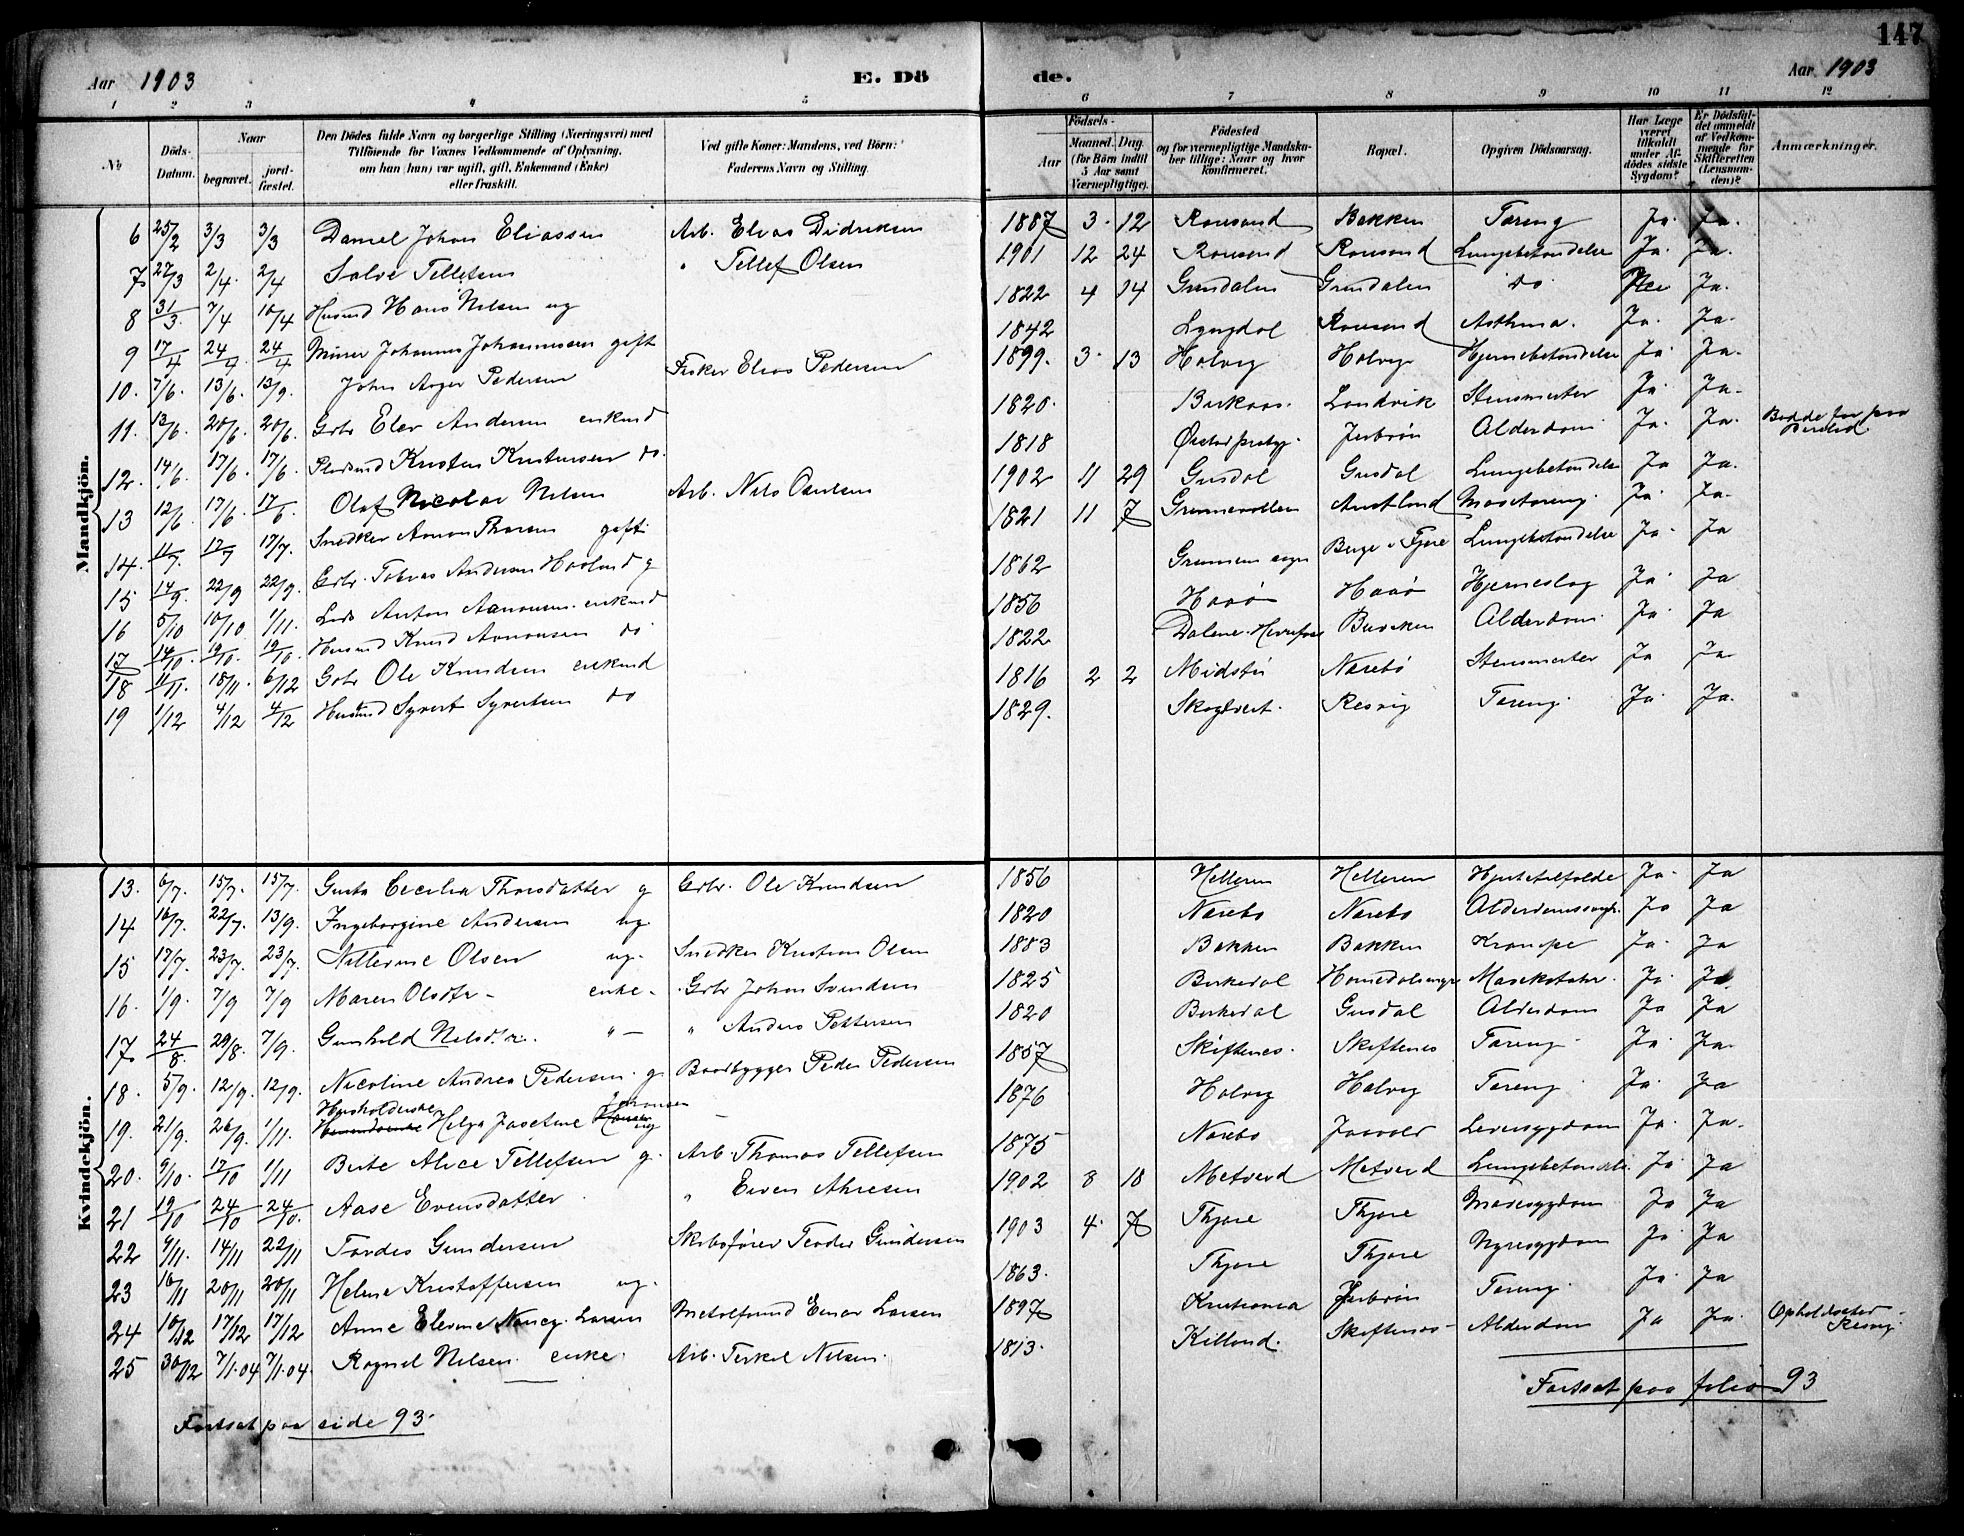 147
Aar 1903 E. Dö de. Aar 1903
1 2 3 4 5 6 7 8 9 10 11 12
No
Döds-Datum.
Naar begravet. jordfæstet.
Den Dödes fulde Navn og borgerlige Stilling (Næringsvei) med Tilföiende for Voxnes Vedkommende af Oplysning, om han (hun) var ugift, gift, Enkemand (Enke) eller fraskilt.
Ved gifte Koner: Mandens, ved Börn: Faderens Navn og Stilling.
Födsels- Aar Maaned. Dag. (for Börn indtil 5 Aar samt Værnepligtige).
Födested og for værnepligtige Mandskaber tillige: Naar og hvor konfirmeret.
Bopæl.
Opgiven Dödsaarsag.
Har Læge været tilkaldt under Afdödes sidste Sygdom?
Er Dödsfaldet anmeldt af Vedkommende for Skifteretten (Lensmanden)?
Anmærkninger.
Mandkjön.
6 25/2 3/3 3/3 Daniel Johan Eliassen Arb. Elias Didriksen 1887 3 12 Roresand Bakken Tæring Ja Ja.
7 27/3 2/4 2/4 Salve Tellefsen " Tellef Olsen 1901 12 24 Roresand Roresand Lungebetændelse Ja. Ja.
8 31/3 7/4 10/4 Husmd Hans Nilsen ug 1822 4 14 Grundalen Grundalen do Nei Ja.
9 17/4 24/4 24/4 Murer Johannes Johannessen gift 1842 Lyngdal Roresand Asthma. Ja. Ja.
10. 7/6. 13/6. 13/9. John Asger Pedersen Fisker Elias Pedersen 1899. 3. 13 Holvig Holvig Hjernebetændelse Ja Ja.
11. 13/6. 20/6. 20/6. Grbr Elev Andersen enkmd 1820. Birkaas. Landvik Stensmerter Ja Ja.
12. 14/6. 17/6. 17/6. Kristen Kristensen do. 1818 Jerbrön Alderdom Ja. Ja.
13 12/6. 17/6. 17/6 Olaf Nicolai Nilsen Arb. Nils Osulsen 1902 11 29 Gusdal Gusdal Lungebetændelse Ja Ja.
14. 11/7. 17/7 17/7. Snedker Aanon Thorsen gift 1821 11 7 Grønnevollen Austland Mavetæring. Ja. Ja.
15 14/9. 22/9 22/9. Grbr. Tobias Andersen Haaland g 1862 Grimmen sogn Berge i Fjære Lungebetændelse Ja. Ja
16 5/10 10/10 1/11. Lods Anton Aanonsen. enkmd 1856 Haaö Haaö Hjerneslag Ja Ja
17 14/10. 19/10. 19/10. Husmd Knud Aanonsen do 1822 Dalene Alderdom Ja Ja
18 11/11. 18/11. 6/12 Grbr Ole Knudsen enkmd 1816 2 2 Midstöi Narebö Stensmerter Ja Ja
19 1/12 4/12 4/12 Husmd Syvert Syvertsen do 1829. Skogtveit. Resvig Tæring. Ja Ja.
Kvindekjön.
13. 6/7. 15/7. 15/7. Gusta Cecilia Thorsdatter g Grbr. Ole Knudsen 1856 Helleren Helleren Hjertetilfælde Ja. Ja
14 16/7. 22/7. 13/9. Ingeborgine Andersen ug. 1820 Narebo Narebo Ja Ja
15 17/7. 23/7. 23/7. Nillerine Olsen ug. Snedker Kristian Olsen 1883 Bakken Bakken Krampe Ja. Ja
16. 1/9. 7/9 7/9 Maren Olsdtr - enke - Grbr Johan Svendsen 1825 Birkedal Ja Ja.
17. 24/8. 29/8. 7/9. Gunhild Nilsd.r. " - " Anders Pettersen 1820 Birkedal Gusdal Alderdom Ja Ja
18. 5/9. 12/9. 12/9. Nicoline Andrea Pedersen. g Baadbygger Peder Pedersen 1857 Skiftenes. Skiftenes Tæring. Ja. Ja.
19. 21/9. 26/9. 1/11. Husholderske Helga Josefine Johansen ug 1876 Holvig Holvig Tæring. Ja. Ja
20. 9/10. 17/10 1/11 Birte Alice Tellefsen g. Arb. Thomas Tellefsen 1875 Narebo Jaavold Leversygdom Ja. Ja.
21 19/10 24/10 24/10. Aase Evensdatter Even 1902 8 18 Metveid Metveid Lungebetændelse Ja Ja
22 9/11. 14/11 22/11 Tordis Gundersen Skibsförer Teodor Gundersen 1903 4. 7 Thjore Thjore Mavesygdom Ja Ja
23 16/11 20/11 20/11 Helene Kristoffersen ug. 1863. Thjore Thjore Nyresygdom Ja. Ja
24 10/12 17/12 17/12 Anne Elevine Nancy. Larsen Einar Larsen 1897 Kristiania Jerbrön Tæring. Ja. Ja
25 30/12 7/1.04 7/1.04 Ragnil Nilsen. enke. Arb. Terkel Nilsen. 1813. Killand. Skiftenes - Alderdom Ja Ja. Opholdssted - Resvig.
Fortsat paa side 93.
Fortsat paa folio 93